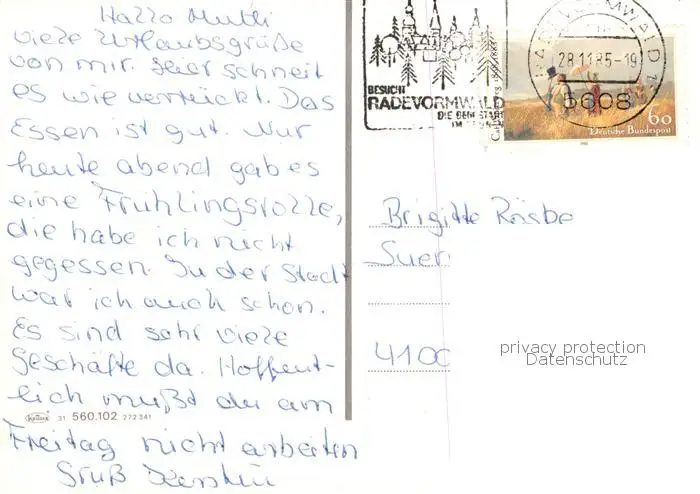 Hallo Mutti
viele Urlaubsgrüße
von mir. Hier schneit
es wie verrückt. Das
Essen ist gut. Nur
heute abend gab es
eine Frühlingsrolle,
die habe ich nicht
gegessen. In der Stadt
war ich auch schon.
Es sind sehr viele
Geschäfte da. Hoffent-
lich mußt du am
31 560.102 272341
Freitag nicht arbeiten
Gruß Kerstin
BESUCHT
RADEVORMWALD
DIE
RADEVORMWALD
28.11.85-19
5608
60
Deutsche Bundespost
Brigitte
4100
privacy protection
Datenschutz